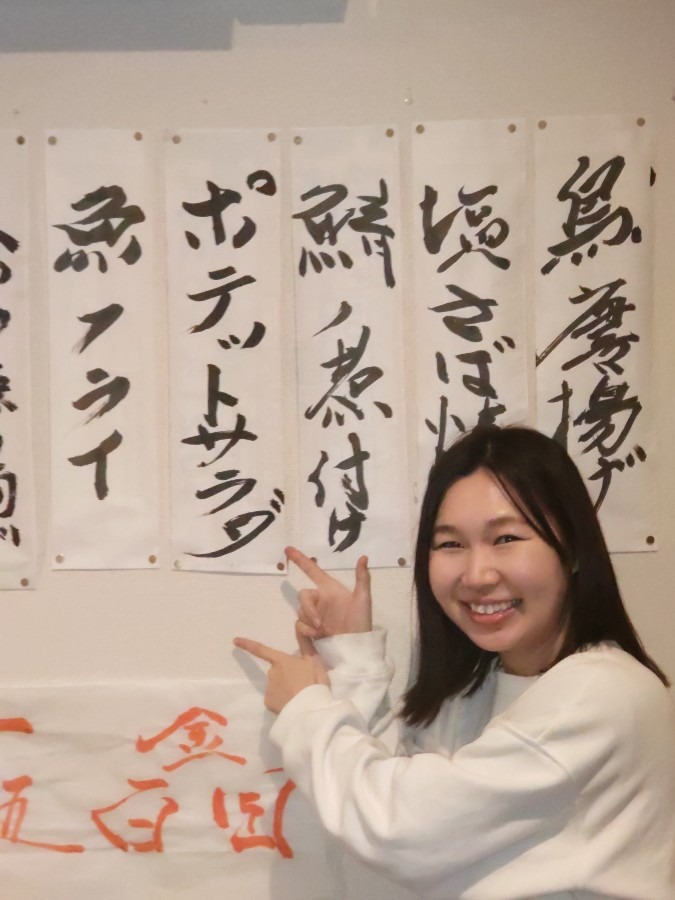 鳥唐揚げ
塩さば焼
鯖ノ煮付け
ポテットサラダ
魚フライ
一金
五百円